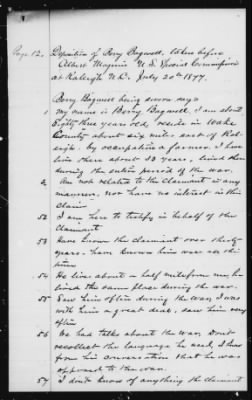 Page 12. Deposition of Berry Bagwell, taken before
Albert Magnin U.S. Special Commissioner
at Raleigh N.C. July 20th 1877.
Berry Bagwell being sworn says
1 my name is Berry Bagwell. I am about
Eighty three years old, reside in Wake
County about six miles East of Ral-
eigh. by occupation a farmer. I have
lived there about 33 years, lived there
during the entire period of the war.
2 Am not related to the claimant in any
manner, nor have no interest in the
claim
52 I am here to testify in behalf of the
claimant
53 Have known the claimant over thirty
years. have known him ever all this
time
54 We live about a half mile from me, he
lived the same place during the war.
55 Saw him often during the war, I was
with him a great deal, saw him very
often
56 We had talks about the war, Dont
recollect the language he used, I know
from his conversation that he was
opposed to the war.
57 I don't know of anything the claimant